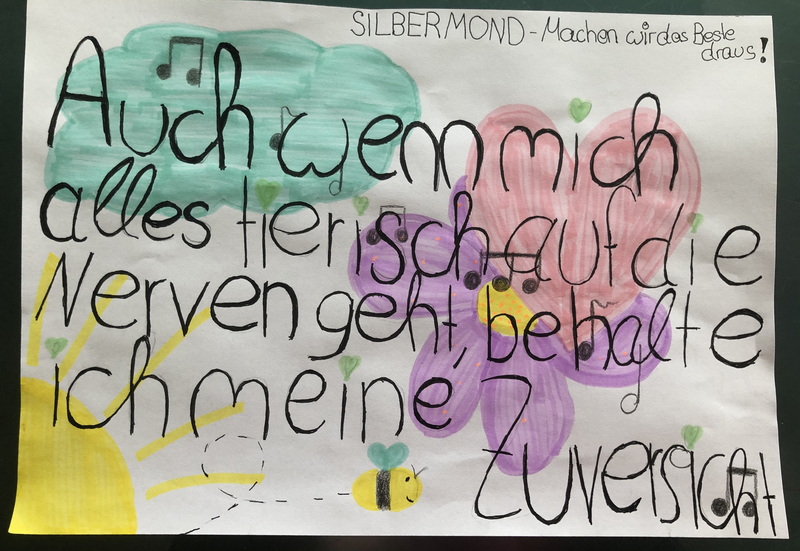 SILBERMOND - Machen wir das Beste
draus!
Auch wenn mich
alles tierisch auf die
Nerven geht, behalte
ich meine
Zuversicht